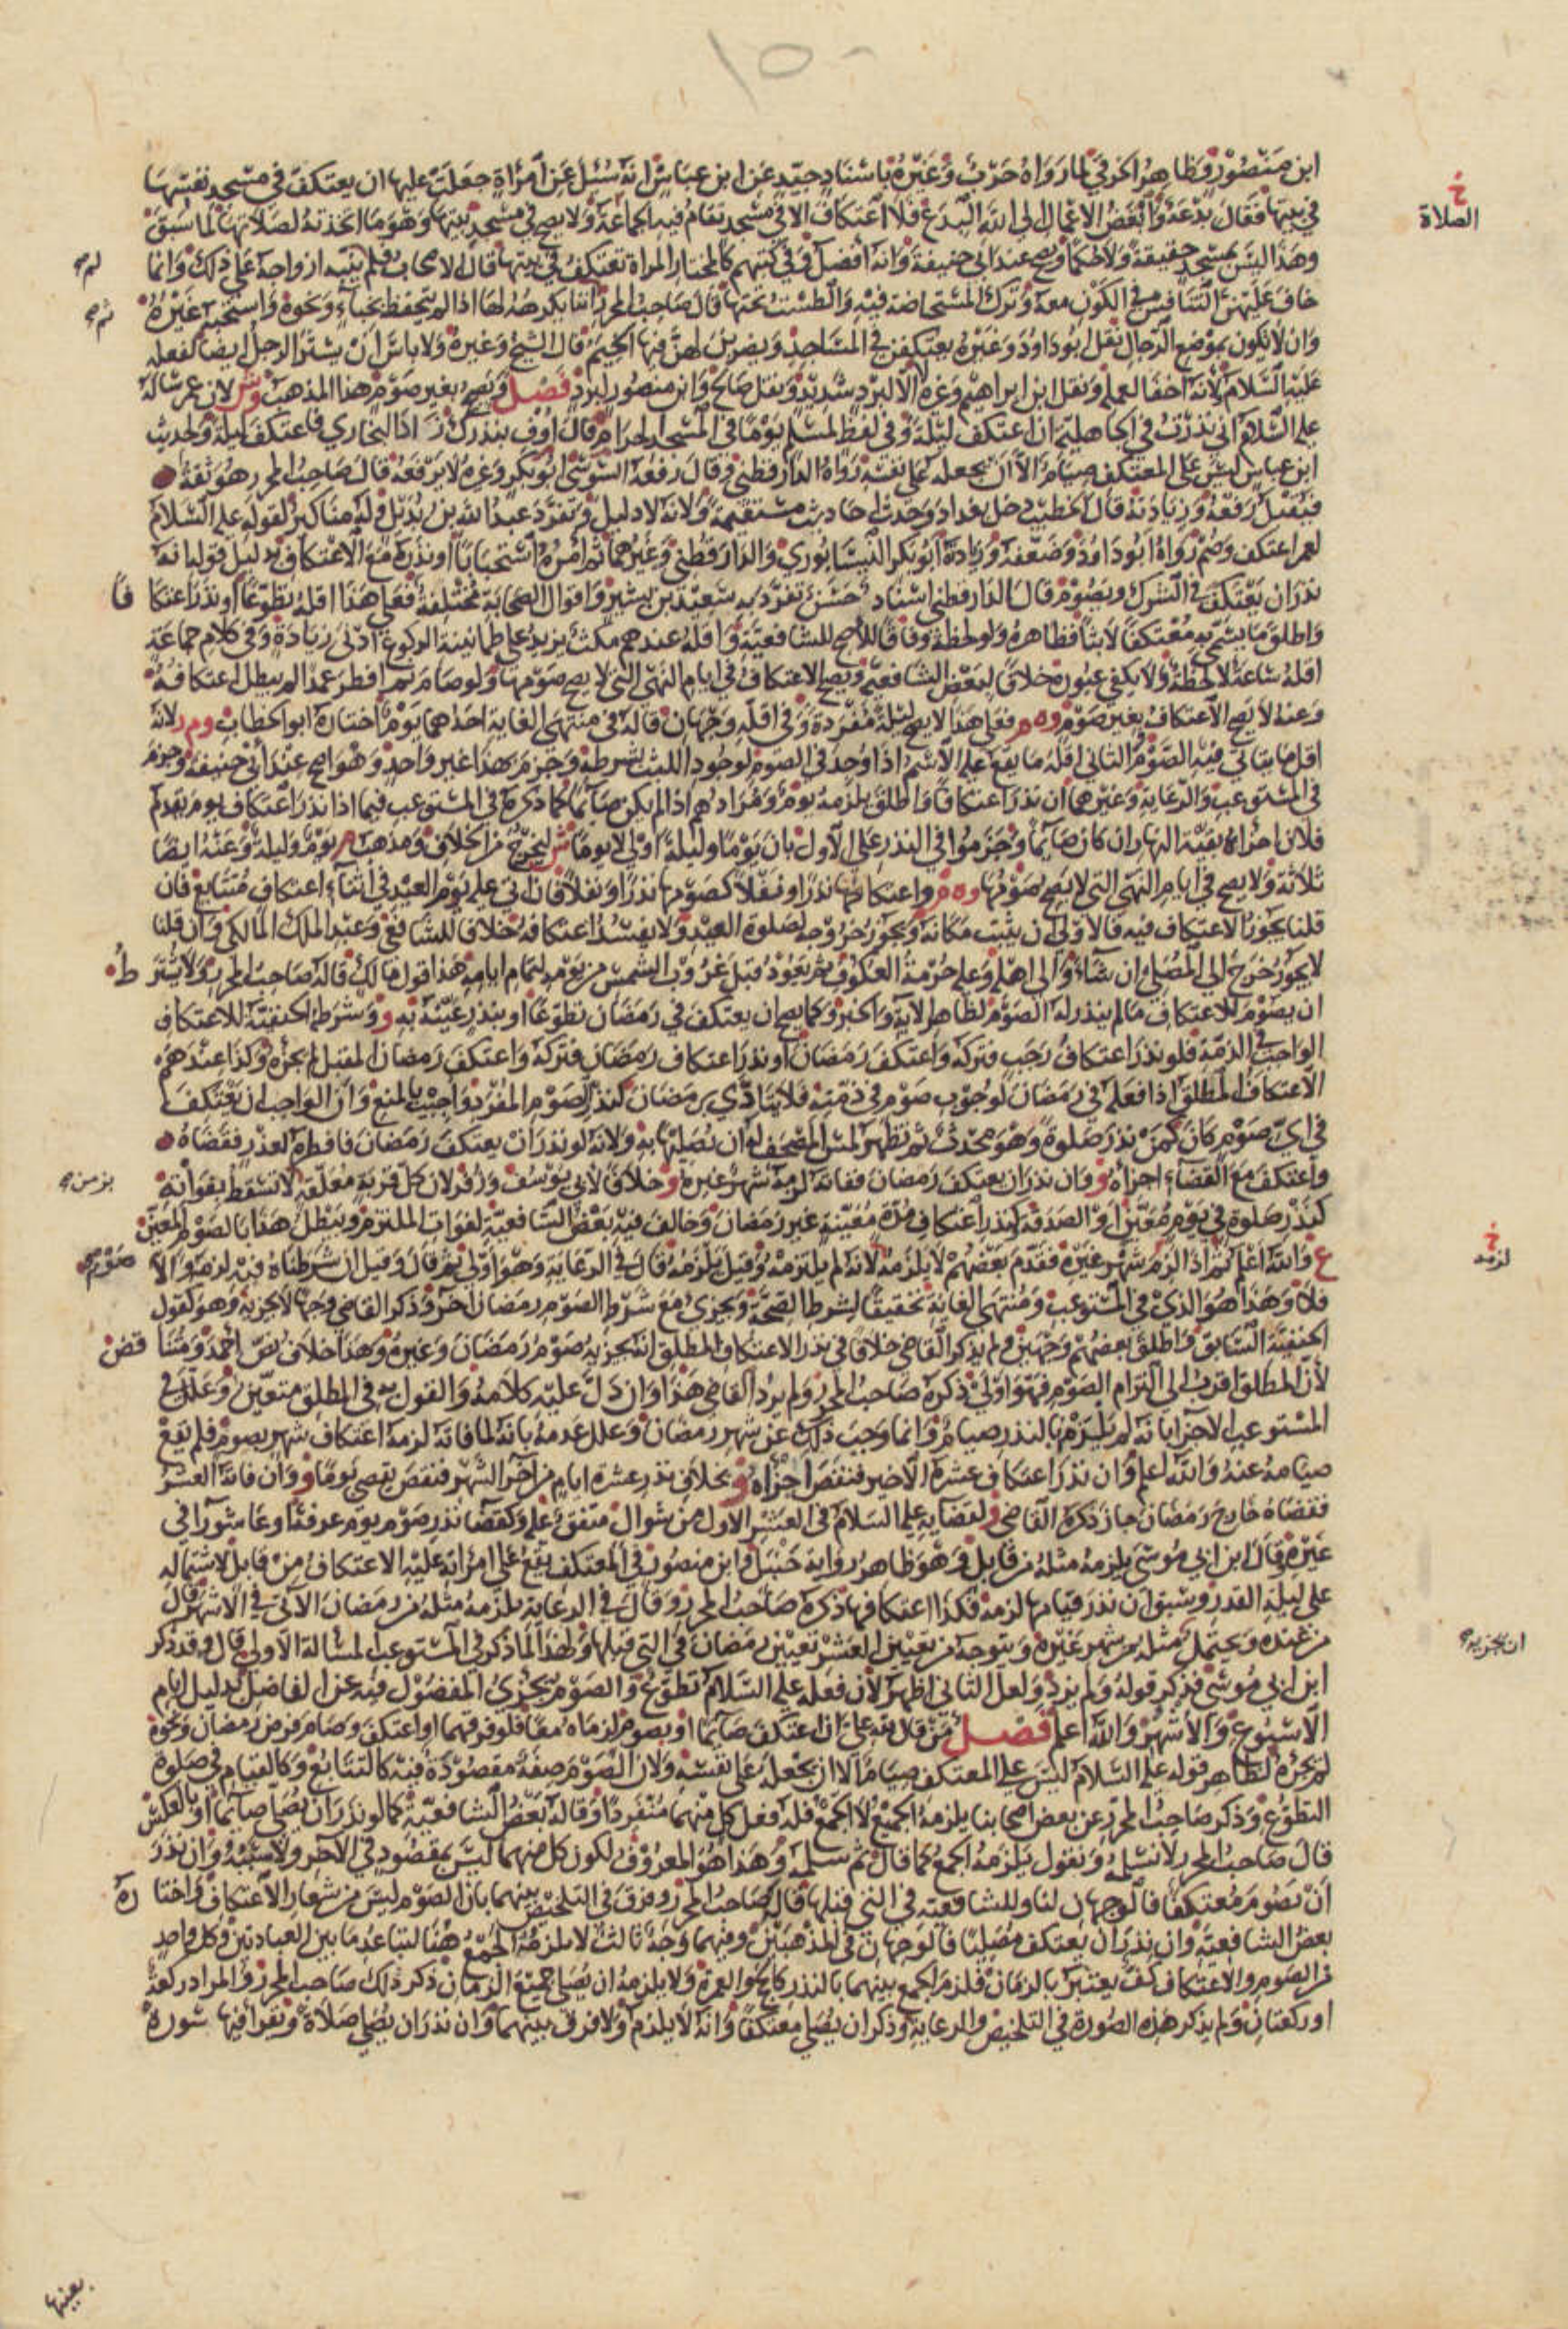 ١٥٠
ابن منصور وظاهر الخرقي لما رواه حرب وغيره باسناد جيد عن ابن عباس انه سئل عن امرأة جعلت عليها ان يعتكف في مسجد نفسها
في بيتها فقال بدعة وأبغض الاعمال إلى الله البدع فلا اعتكاف الا في مسجد تقام فيه الجماعة ولا يصح في مسجد بيتها وهو ما اتخذته لصلاتها لما سبق
الصلاة
وهذا ليس بمسجد حقيقة ولا حكما ويصح عند ابي حنيفة وانه افضل وفي كتبهم كالمختار المراة تعتكف في بيتها قال الاصحاب ولم ينبه ازواجه على ذلك وانما
خاف عليهن التنافس في الكون معه وترك المستحاضة فيه والطست تحتها قال صاحب المحرر انما يكره لها اذا لم تتحفظ بخباء ونحوه واستحبه غيره
وان لا يكون بموضع الرجال نقل ابو داود وغيره يعتكفن في المساجد ويضرب لهن فيها الخيم قال الشيخ وغيره ولا باس ان يستتر الرجل ايضا لفعله
عليه السلام لأنه اخفا لعمله ونقل ابن ابراهيم وغيره لا الا لبرد شديد ونقل صالح وابن منصور لبرد فصل ويصح بغير صوم هذا المذهب وش لان عمر سأله
عليه السلام اني نذرت في الجاهلية ان اعتكف ليلة وفي لفظ لمسلم يوما في المسجد الحرام قال اوف بنذرك زاد البخاري فاعتكف ليلة ولحديث
ابن عباس ليس على المعتكف صيام الا ان يجعله على نفسه رواه الدارقطني وقال رفعه السوسي ابو بكر وغيره لا يرفعه قال صاحب المحرر هو ثقة
فيقبل رفعه وزيادته قال الخطيب دخل بغداد وحدث احاديث مستقيمة ولانه لا دليل وتفرد عبد الله بن بديل وله مناكير لقوله عليه السلام
لعمر اعتكف وصم رواه ابو داود وضعفه وزيادته ابو بكر النيسابوري والدارقطني وغيرهما ثم امره استحبابا او نذره مع الاعتكاف بدليل قوله انه
نذر ان يعتكف في الشرك ويصوم قال الدارقطني اسناد حسن تفرد به سعيد بن بشير واقوال الصحابة مختلفة فعلى هذا اقله تطوعا او نذر اعتكا فا
واطلق ما يسمى به معتكفا لابثا فظاهره ولو لحظة وفاقا للأصح للشافعية واقله عندهم مكث يزيد على طمانينة الركوع ادنى زيادة وفي كلام جماعة
اقله ساعة لا لحظة ولا يكفي عبوره خلافا لبعض الشافعية ويصح الاعتكاف في ايام النهي التي لا يصح صومها ولو صام ثم افطر عمدا لم يبطل اعتكافه
وعنه لا يصح الاعتكاف بغير صوم وه م فعلى هذا لا يصح ليلة مفردة وفي اقله وجهان قاله في منتهى الغاية احدهما يوم اختاره ابو الخطاب وم ر لانه
اقل ما يتأتى فيه الصوم الثاني اقله ما يقع عليه الاسم اذا وجد في الصوم لوجود اللبث بشرطه وجزم بهذا غير واحد وهو اصح عند ابي حنيفة وجزم
في المستوعب والرعاية وغيرهما ان نذر اعتكافا واطلق يلزمه يوم ومرادهم اذا لم يكن صائما كما ذكره في المستوعب فيما اذا نذر اعتكاف يوم يقدم
فلان اجزاه بقية النهار ان كان صائما وجزموا في النذر على الأول بان يوما وليلة اولى لا يوما ش ليخرج من الخلاف ومذهب م يوم وليلة وعنه ايضا
ثلاثة ولا يصح في ايام النهي التي لا يصح صومها وه م واعتكافها نذرا ونفلا كصومها نذرا ونفلا فان اتى عليه يوم العيد في اثناء اعتكاف متتابع فان
قلنا يجوز الاعتكاف فيه فالاولى ان يثبت مكانه ويجوز خروجه لصلوة العيد ولا يفسد اعتكافه خلافا للشافعي وعبد الملك المالكي وان قلنا
لا يجوز خرج الى المصلى ان شاء والى اهله وعليه حرمة العكوف ثم يعود قبل غروب الشمس من يومه لتمام ايامه هذا قول مالك قاله صاحب المحرر ولا يشتر طُ
ان يصوم للاعتكاف ما لم ينذر له الصوم لظاهر الاية والخبر وكما يصح ان يعتكف في رمضان تطوعا او بنذر عينه به و وشرط الحنفية للاعتكاف
الواجب في الذمة فلو نذر اعتكاف رجب فتركه واعتكف رمضان او نذر اعتكاف رمضان فتركه واعتكف رمضان المقبل لم يجزه وكذا عندهم
الاعتكاف المطلق اذا فعله في رمضان لوجوب صوم في ذمته فلا يتادى برمضان كنذر الصوم المفرد واجيب بالمنع وان الواجب ان يعتكف
في اي صوم كان كمن نذر صلوة وهو محدث ثم تطهر لمس المصحف له ان يصليها به ولانه لو نذر ان يعتكف رمضان فافطره لعذر فقضاه
واعتكف مع القضاء اجزاه و فان نذر ان يعتكف رمضان ففاته لزمه شهر غيره و خلافا لابي يوسف وزفر لان كل قربة معلقة لا تسقط بفواته
بزمن صح
كنذر صلوة في يوم معين او الصدقة كنذر اعتكاف مدة معينة غير رمضان وخالف فيه بعض الشافعية لفوات الملتزم ويبطل هذا بالصوم المعين
ع والله اعلم ثم اذا لزم شهر غيره فقدم بعضهم لا يلزمه لانه لم يلتزمه وقيل يلزمه قال في الرعاية وهو اولى ثم قال وقيل ان شرطناه فيه لزمه والا
صوم صح
لزمه
فلا وهذا هو الذي في المستوعب ومنتهى الغاية تحقيقا لشرط الصحة ويجزئ مع شرط الصوم رمضان اخر وذكر القاضي وجها لا يجزيه وهو كقول
الحنفية السابق واطلق بعضهم وجهين ولم يذكر القاضي خلافا في نذر الاعتكاف المطلق انه يجزيه صوم رمضان وغيره وهذا خلاف نص احمد ومتنا قض
لأن المطلق اقرب الى التزام الصوم فهو اولى ذكره صاحب المحرر ولم يرد القاضي هذا وان دل عليه كلامه والقول به في المطلق متعين وعلل في
المستوعب الاجزا بانه لم يلتزم بالنذر صياما وانما وجب ذلك عن شهر رمضان وعلل عدمه بانه لما فاته لزمه اعتكاف شهر بصوم فلم يقع
صيامه عنه والله اعلم وان نذر اعتكاف عشره الأخير فنقص اجزاه و بخلاف نذر عشرة ايام من اخر الشهر فنقص يقضي يوما و وان فاته العشر
فقضاه خارج رمضان جاز ذكره القاضي و لقضايه عليه السلام في العشر الاول من شوال متفق عليه وكقضا نذر صوم يوم عرفة وعاشورا في
غيره وقال ابن ابي موسى يلزمه مثله من قابل وهو ظاهر رواية حنبل وابن منصور في المعتكف يقع على امرأته عليه الاعتكاف من قابل لاشتماله
على ليلة القدر وسبق ان نذر قيامها لزمه فكذا اعتكافها ذكره صاحب المحرر وقال في الرعاية يلزمه مثله من رمضان الآتي في الاشهر قال
من عنده ويحتمل مثله من شهر غيره ويتوجه من تعيين العشر تعيين رمضان في التي قبلها ولهذا لما ذكر في المستوعب المسألة الأولى قال وقد ذكر
ان يجزيه صح
ابن ابي موسى فذكر قوله ولم يزد ولعل الثاني اظهر لأن فعله عليه السلام تطوع والصوم يجزئ المفضول فيه عن الفاضل بدليل ايام
الأسبوع والأشهر والله اعلم فصل من قال لله علي ان اعتكف صائما او بصوم لزماه معا فلو فرقهما او اعتكف وصام فرض رمضان ونحوه
لم يجزه لظاهر قوله عليه السلام ليس على المعتكف صيام الا ان يجعله على نفسه ولان الصوم صفة مقصودة فيه كالتتابع وكالقيام في صلوة
التطوع وذكر صاحب المحرر عن بعض اصحابنا يلزمه الجميع لا الجمع فله فعل كل منهما منفردا وقاله بعض الشافعية كما لو نذر ان يصلي صائما او بالعكس
قال صاحب المحرر لا نسلمه ونقول يلزمه الجمع كما قال ثم سلمه وهذا هو المعروف لكون كل منهما ليس بمقصود في الآخر ولا سببه وان نذر
ان يصوم معتكفا فالوجهان لنا وللشافعية في التي قبلها قاله صاحب المحرر وفرق في التلخيص بينهما بان الصوم ليس من شعار الاعتكاف واختا ره
بعض الشافعية وان نذر ان يعتكف مصليا فالوجهان في المذهبين وفيهما وجه ثالث لا يلزمه الجمع هنا لتباعد ما بين العبادتين وكل واحد
من الصوم والاعتكاف كف يعتبر بالزمان فلزم الجمع بينهما بالنذر كالحج والعمرة ولا يلزمه ان يصلي جميع الزمان ذكر ذلك صاحب المحرر والمراد ركعة
او ركعتان ولم يذكر هذه الصورة في التلخيص والرعاية وذكر ان يصلي معتكفا وانه لا يلزم ولا فرق بينهما وان نذر ان يصلي صلاة ويقرأ فيها سورة
بعينها